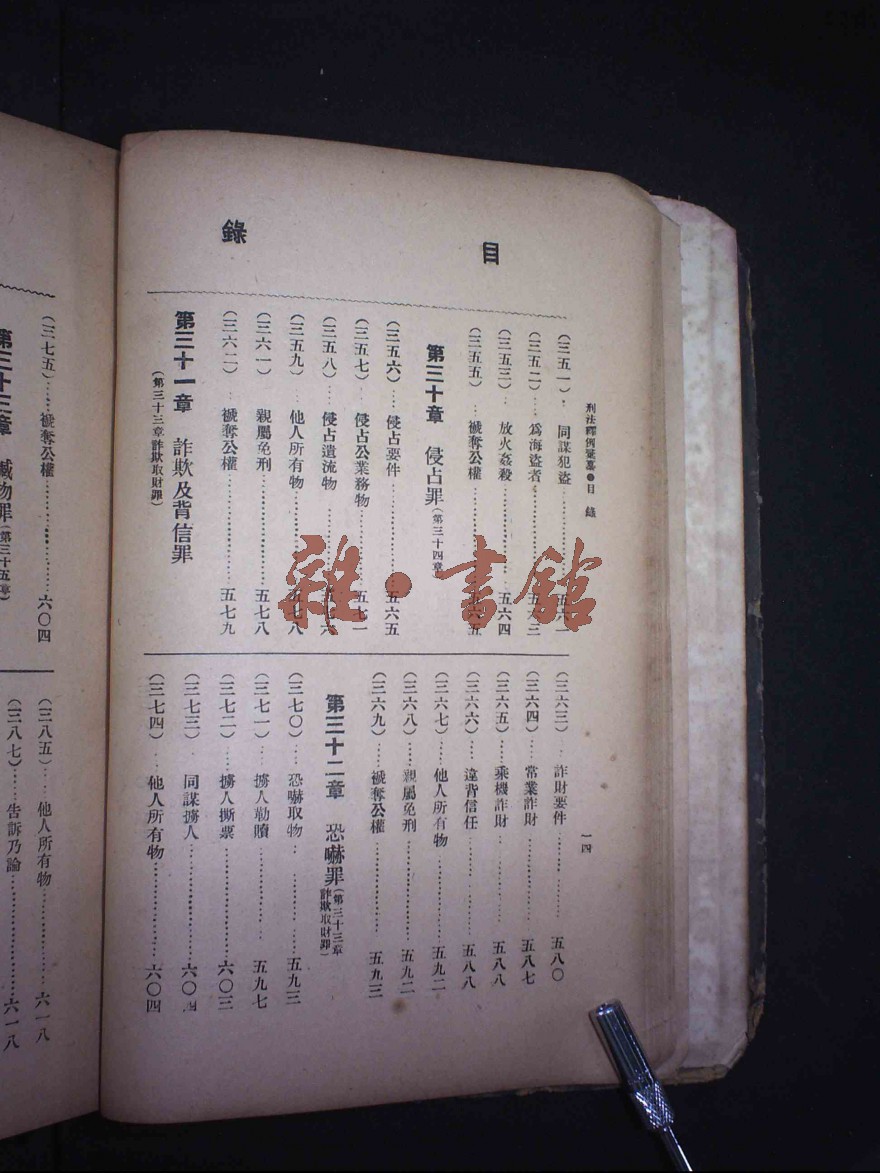 目
錄
刑法釋例彙纂●目錄
一四
(三五一)同謀犯盜……五六二
(三五二)爲海盜者……五六三
(三五三)放火姦殺……五六四
(三五五)褫奪公權……五六五
第三十章 侵占罪(第三十四章
(三五六)侵占要件……五六五
(三五七)侵占公業務物……五七一
(三五八)侵占遺流物……五七六
(三五九)他人所有物……五七八
(三六一)親屬免刑……五七八
(三六二)褫奪公權……五七九
第三十一章 詐欺及背信罪
(第三十三章詐欺取財罪)
(三六三)詐財要件……五八〇
(三六四)常業詐財……五八七
(三六五)乘機詐財……五八八
(三六六)違背信任……五八八
(三六七)他人所有物……五九二
(三六八)親屬免刑……五九二
(三六九)褫奪公權……五九三
第三十二章 恐嚇罪(第三十三章
詐欺取財罪)
(三七〇)恐嚇取物……五九三
(三七一)擄人勒贖……五九七
(三七二)擄人撕票……六〇三
(三七三)同謀擄人……六〇四
(三七四)他人所有物……六〇四
(三七五)褫奪公權……六〇四
第三十三章 贓物罪(第三十五章)
(三八五)他人所有物……六一八
(三八七)告訴乃論……六一八
雜·書館